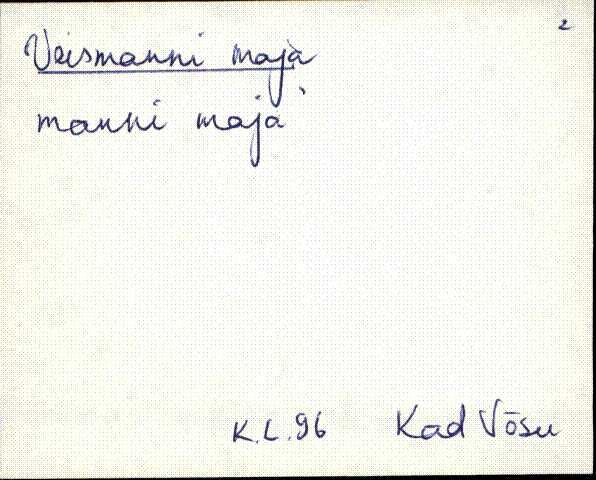 2
Veismanni maja
manni maja
K.L.96 Kad Võsu